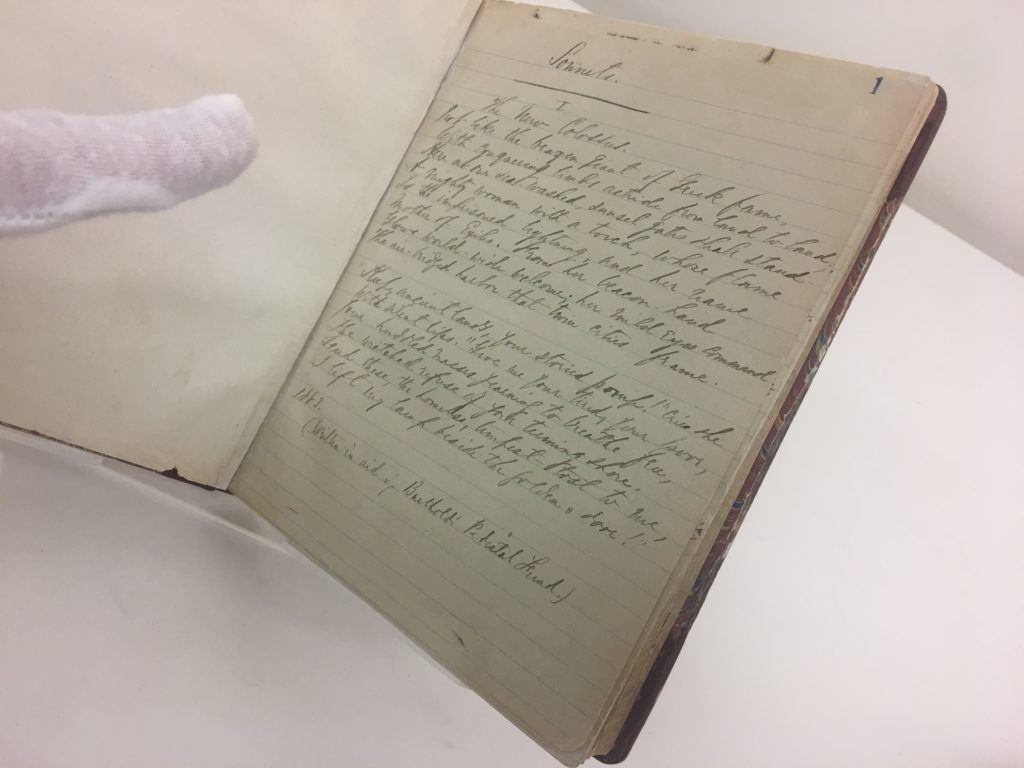 Sonnets.
1
I
The New Colossus.
Not like the brazen giant of Greek fame,
With conquering limbs astride from land to land;
Here at our sea-washed sunset gates shall stand
A mighty woman with a torch, whose flame
Is the imprisoned lightning, and her name
Mother of Exiles. From her beacon-hand
Glows world-wide welcome; her mild eyes command
The air-bridged harbor that twin cities frame.
"Keep ancient lands, your storied pomp!" cries she
With silent lips. "Give me your tired, your poor,
Your huddled masses yearning to breathe free,
The wretched refuse of your teeming shore.
Send these, the homeless, tempest-tost to me,
I lift my lamp beside the golden door!"
1883.
(Written in aid of Bartholdi Pedestal Fund.)